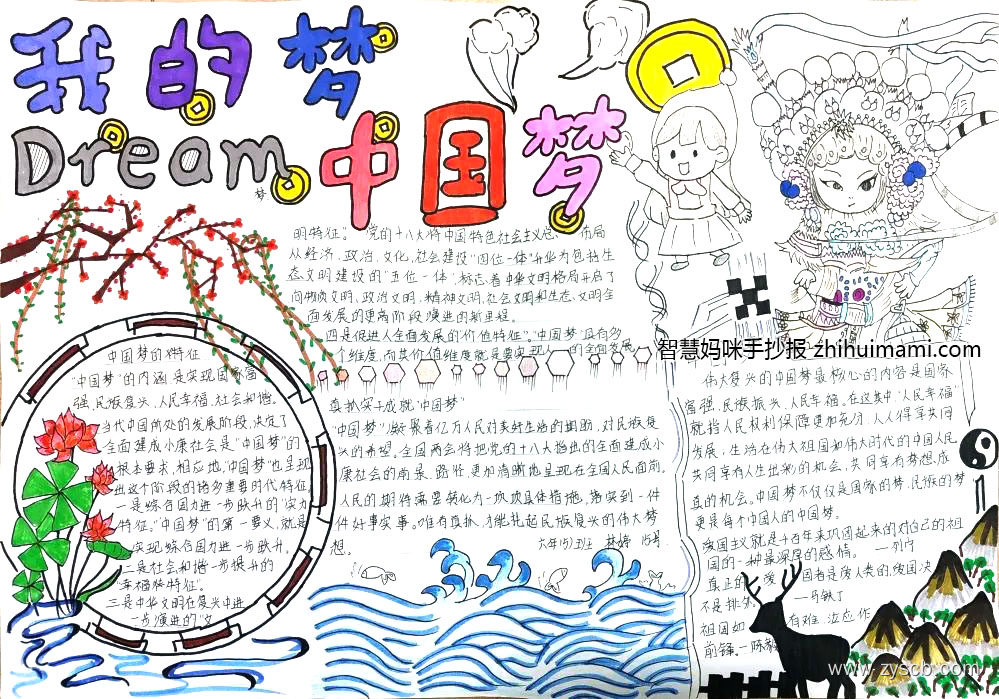 我的梦
Dream 中国梦
梦
中国梦的特征
"中国梦"的内涵是实现国家富
强、民族复兴、人民幸福、社会和谐。
当代中国所处的发展阶段,决定了
全面建成小康社会是"中国梦"的
根本要求,相应地,"中国梦"也呈现
出这个阶段的诸多重要时代特征
一是综合国力进一步跃升的"实力
特征。"中国梦"的第一要义,就是
实现综合国力进一步跃升。
二是社会和谐进一步提升的
"幸福特征"。
三是中华文明在复兴中进
一步演进的"文
明特征"。党的十八大将中国特色社会主义总布局
从经济、政治、文化、社会建设"四位一体"升华为包括生
态文明建设的"五位一体",标志着中华文明格局开启了
向物质文明、政治文明、精神文明、社会文明和生态文明全
面发展的更高阶段演进的新里程。
四是促进人全面发展的价值特征"。"中国梦"具有多
个维度,而其价值维度就是要实现人的全面发展
真抓实干成就"中国梦"
"中国梦"凝聚着亿万人民对美好生活的期盼,对民族复
兴的希望。全国两会将把党的十八大指出的全面建成小
康社会的前景、路径更加清晰地呈现在全国人民面前。
人民的期待需要转化为一项项具体措施,落实到一件
件好事实事。唯有真抓,才能托起民族复兴的伟大梦
想。
六年(5)班 林婷 15号
智慧妈咪手抄报·zhihuimami.com
伟大复兴的中国梦最核心的内容是国家
富强、民族振兴、人民幸福。在这其中"人民幸福"
就指人民权利保障更加充分、人人得享共同
发展,生活在伟大祖国和伟大时代的中国人民
共同享有人生出彩的机会,共同享有梦想成
真的机会。中国梦不仅仅是国家的梦、民族的梦
更是每个中国人的中国梦。
爱国主义就是千百年来巩固起来的对自己的祖
国的一种最深厚的感情。 —列宁
真正的爱国者是
不是排外
祖国如有难,汝应作
前锋。—陈毅
www.zyscb.com